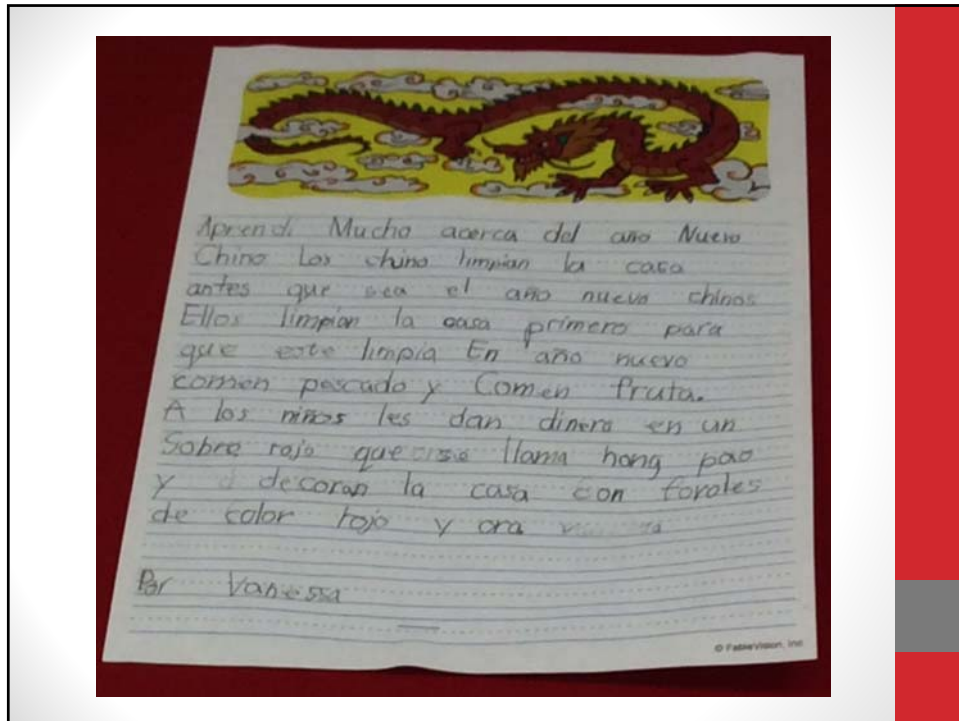 Aprendi Mucho acerca del año Nuevo
Chino Los chino limpian la casa
antes que sea el año nuevo chinos
Ellos limpian la casa primero para
que este limpia En año nuevo
comen pescado y Comen fruta.
A los niños les dan dinero en un
Sobre rojo que se llama hong pao
y decoran la casa con foroles
de color rojo y oro
Por Vanessa
© FableVision, Inc